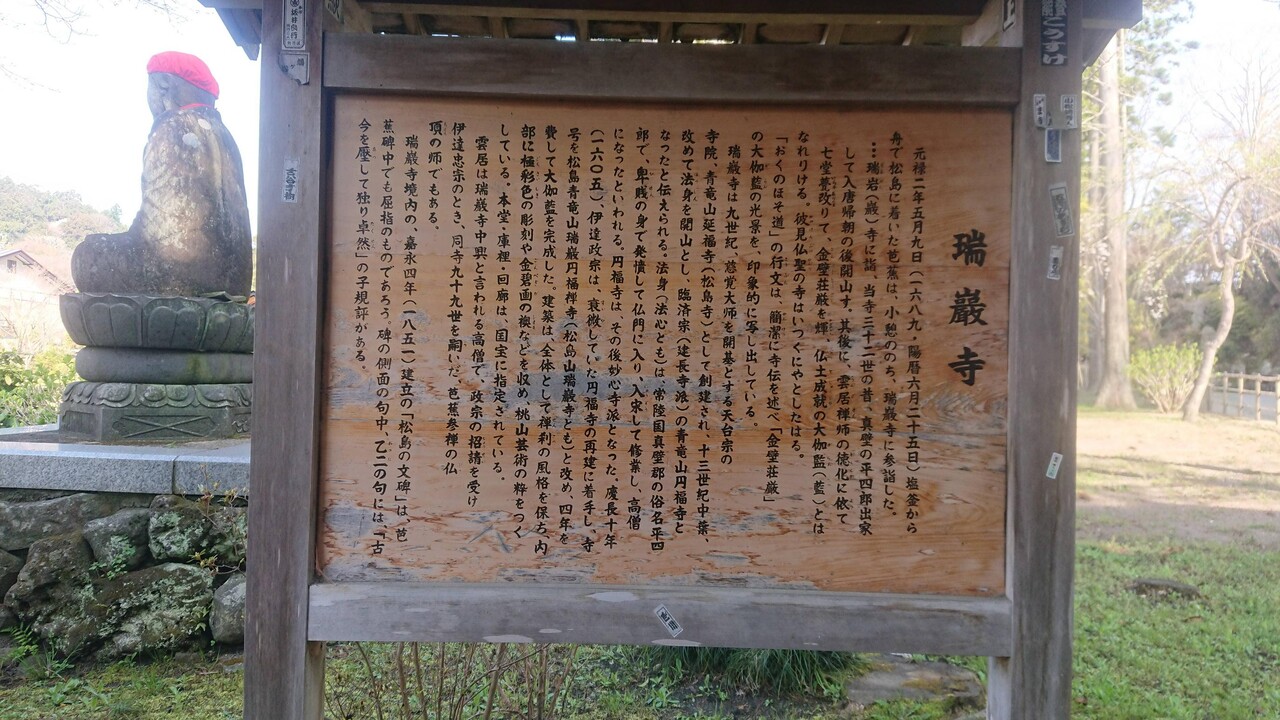 瑞巖寺
元禄二年五月九日（一六八九・陽暦六月二十五日）塩釜から
舟で松島に着いた芭蕉は、小憩ののち、瑞巌寺に参詣した。
…瑞岩（巌）寺に詣、当寺三十二世の昔、真壁の平四郎出家
して入唐帰朝の後開山す。其後に、雲居禅師の徳化に依て
七堂甍改りて、金壁荘厳を輝、仏土成就の大伽監（藍）とは
なれりける。彼見仏聖の寺はいづくにやとしたはる。
「おくのほそ道」の行文は、簡潔に寺伝を述べ「金壁荘厳」
の大伽藍の光景を、印象的に写し出している。
瑞巌寺は九世紀、慈覚大師を開基とする天台宗の
寺院、青竜山延福寺（松島寺）として創建され、十三世紀中葉、
改めて法身を開山とし、臨済宗（建長寺派）の青竜山円福寺と
なったと伝えられる。法身（法心とも）は、常陸国真壁郡の俗名平四
郎で、卑賎の身で発憤して仏門に入り、入宋して修業し、高僧
になったといわれる。円福寺は、その後妙心寺派となった。慶長十年
（一六〇五）、伊達政宗は、衰微していた円福寺の再建に着手し、寺
号を松島青竜山瑞巌円福禅寺（松島山瑞巌寺とも）と改め、四年を
費して大伽藍を完成した。建築は、全体として禅刹の風格を保ち、内
部に極彩色の彫刻や金碧画の襖などを収め、桃山芸術の粋をつく
している。本堂・庫裡・回廊は、国宝に指定されている。
雲居は瑞巌寺中興と言われる高僧で、政宗の招請を受け
伊達忠宗のとき、同寺九十九世を嗣いだ。芭蕉参禅の仏
頂の師でもある。
瑞巌寺境内の、嘉永四年（一八五一）建立の「松島の文碑」は、芭
蕉碑中でも屈指のものであろう。碑の側面の句中、乙二の句には、「古
今を壓して独り卓然」の子規評がある。
こうすけ